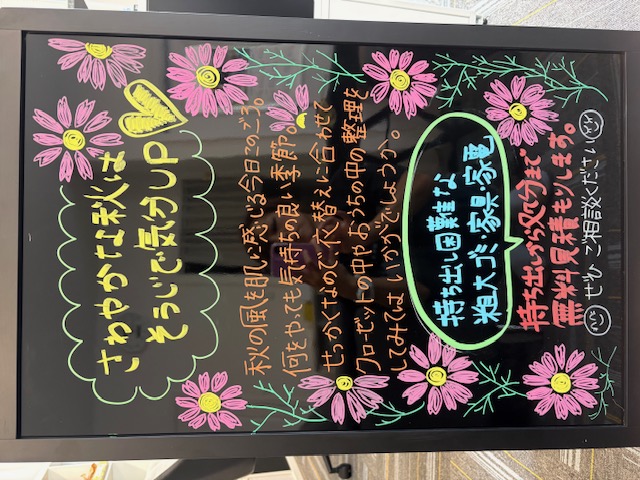 さわやかな秋は
そうじで気分UP
秋の風を肌に感じる今日このごろ。
何をやっても気持ちの良い季節。
せっかくなので衣替えに合わせて
クローゼットの中やおうちの中の整理を
してみてはいかがでしょうか。
持ち出し困難な
粗大ゴミ・家具・家電
持ち出しから処分まで
無料見積もりします。
ぜひご相談ください